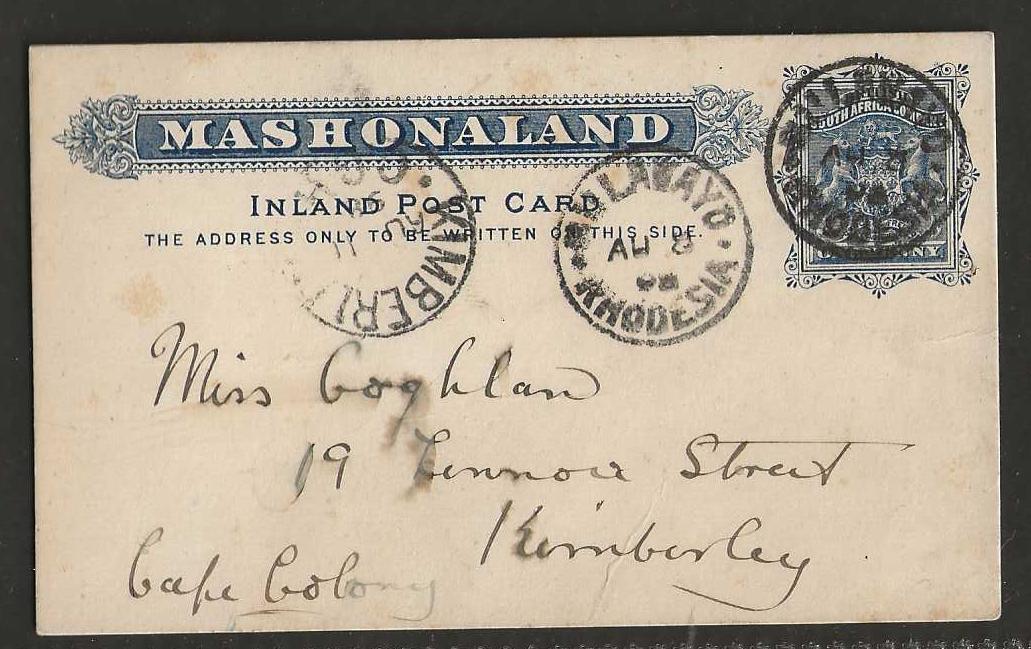 MASHONALAND
INLAND POST CARD
THE ADDRESS ONLY TO BE WRITTEN ON THIS SIDE.
SOUTH AFRICA COMPANY
ONE PENNY
BULAWAYO
RHODESIA
BULAWAYO
AU 8
98
RHODESIA
KIMBERLEY
Miss Coghlan
19 Lennox Street
Kimberley.
Cape Colony